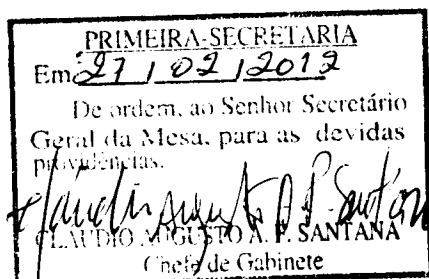 PRIMEIRA-SECRETARIA
Em 27 / 02 / 2012
De ordem, ao Senhor Secretário
Geral da Mesa, para as devidas
providências.
CLAUDIO AUGUSTO A. P. SANTANA
Chefe de Gabinete